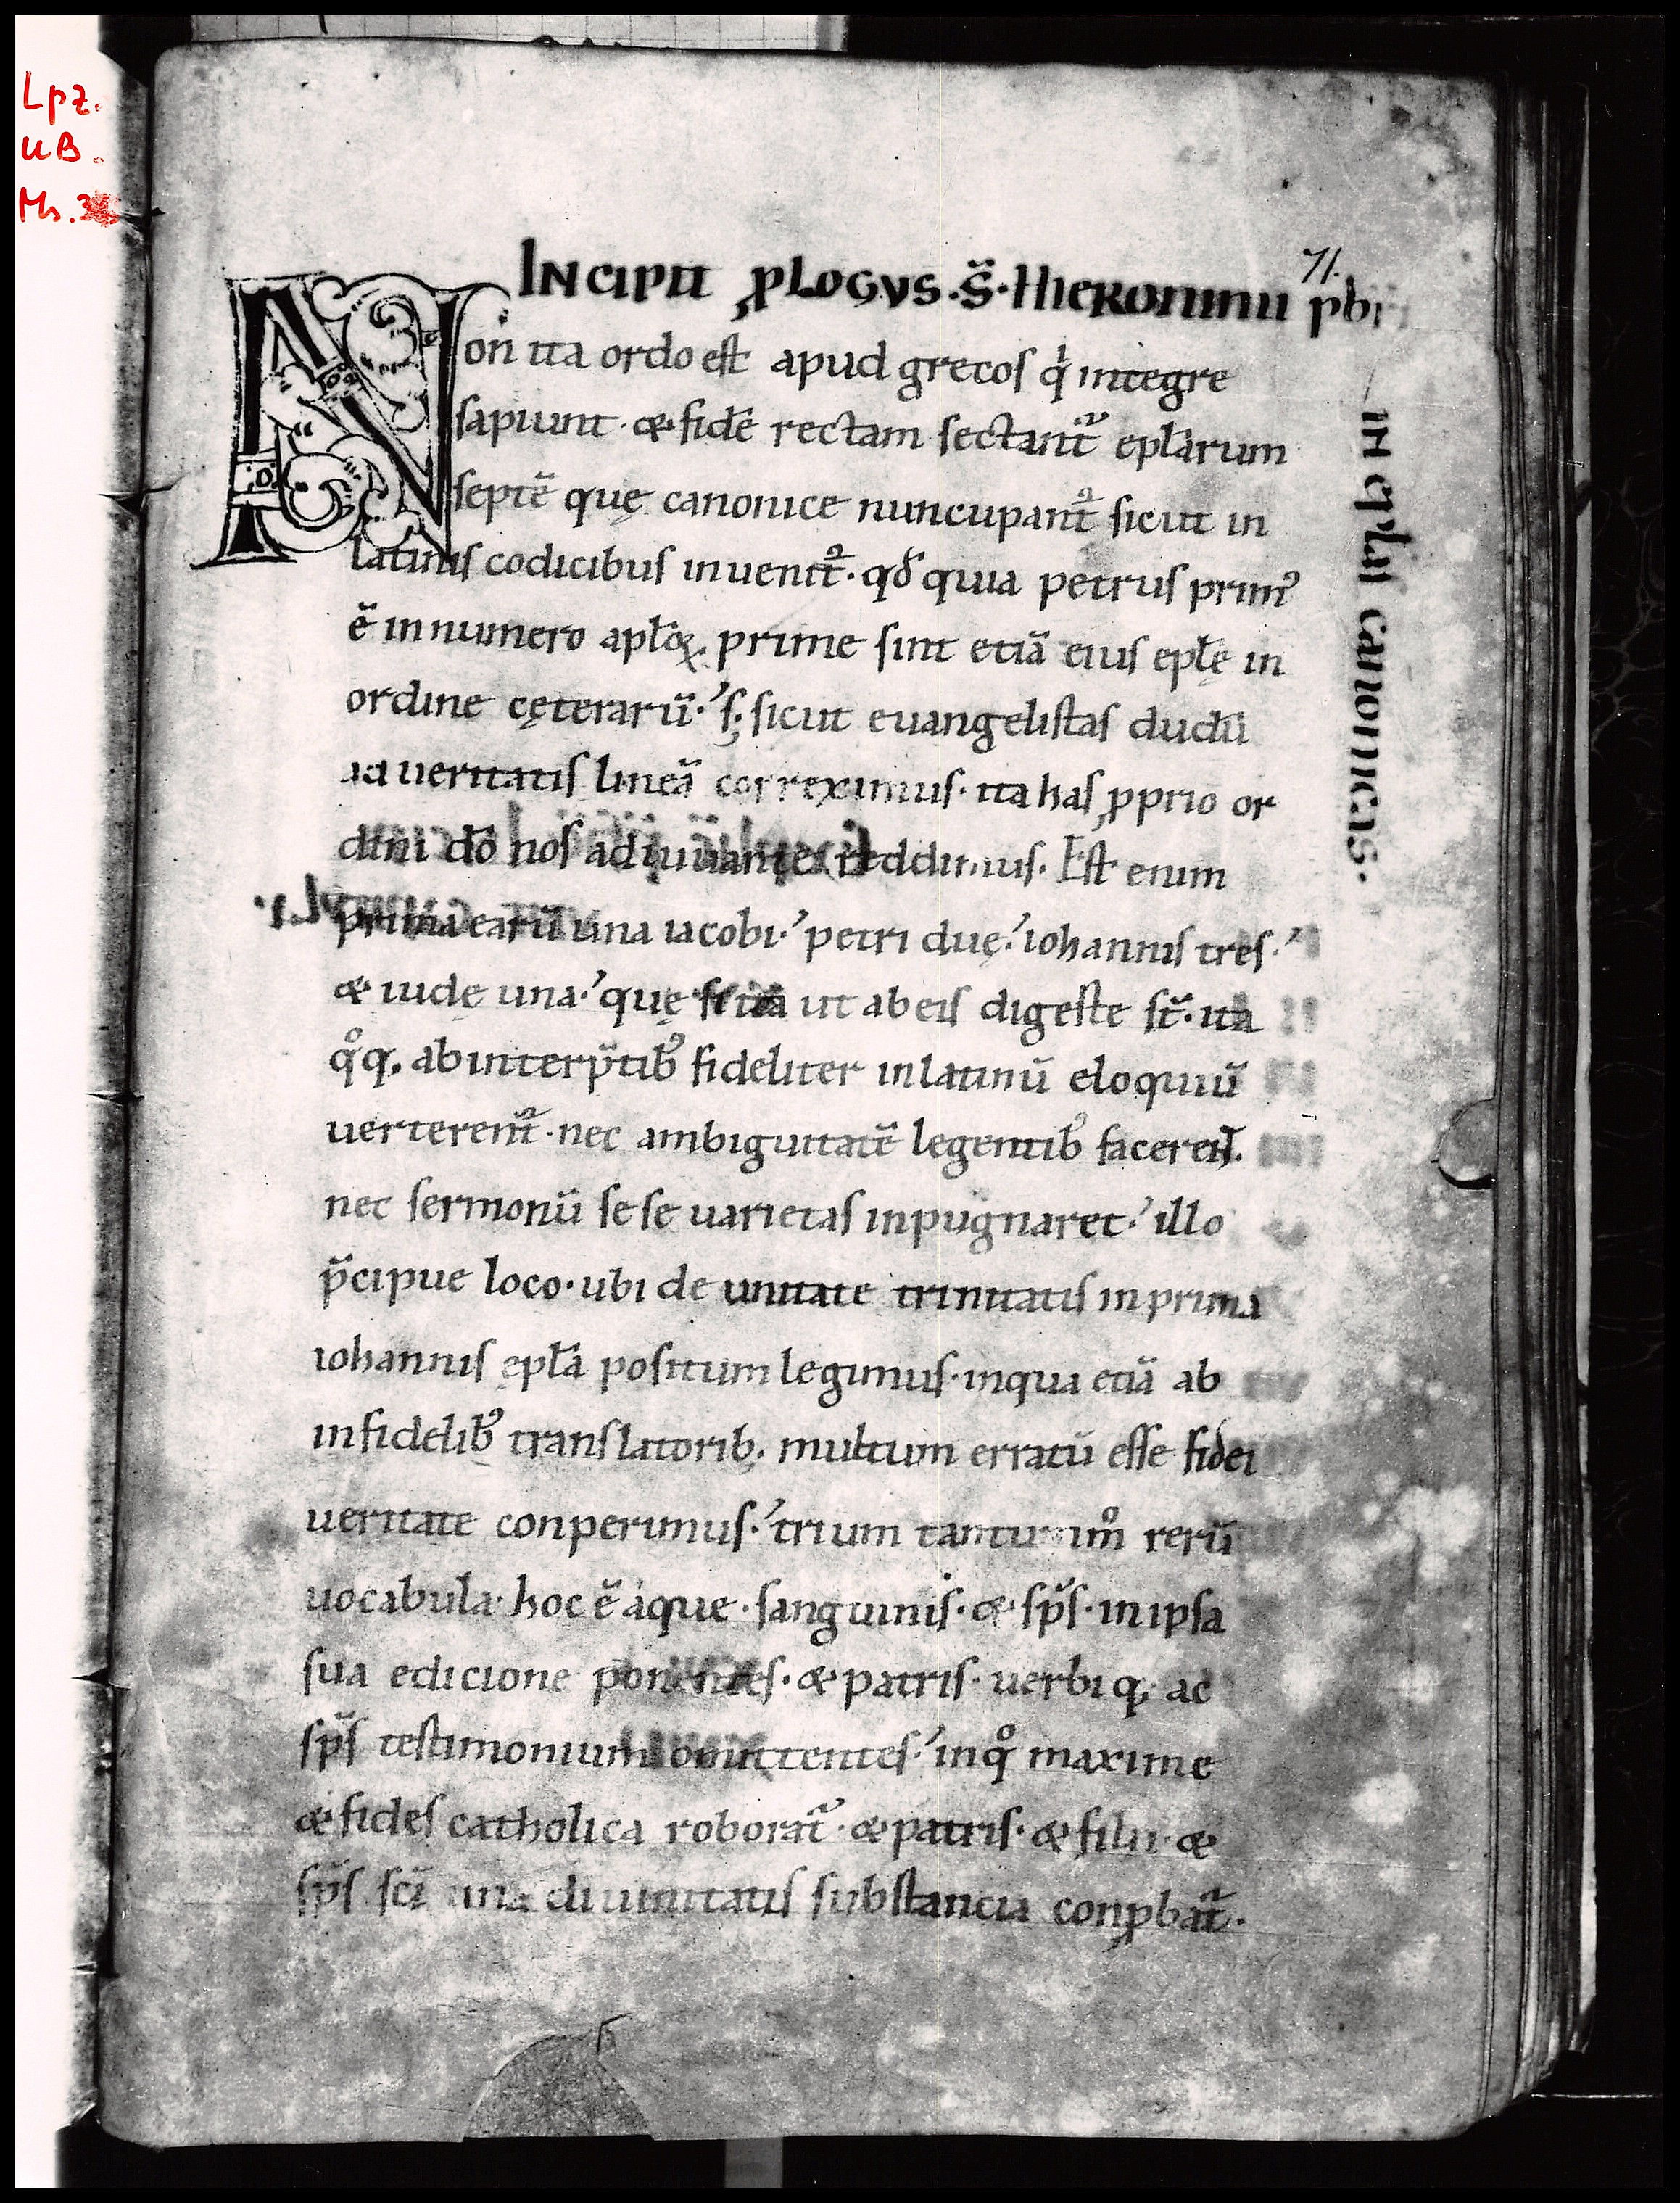 Lpz.
UB.
Ms. 3
71.
INCIPIT ꝓLOGVS · S̄ · HIERONIMI pbi
IN ep̄las canonicas ·
Non ita ordo est apud grecos qͥ integre
sapiunt · & fidē rectam sectant᷑ epl̄arum
septē quę canonice nuncupant᷑ sicut in
latinis codicibus inuenit᷑ · qđ quia petrus primꝰ
ē in numero apl̄oꝝ · prime sint etiā eius epl̄ę in
ordine cęterarū · s; sicut euangelistas dudū
ad ueritatis lineā correximus · ita has ꝓprio or
dini dō nos adiuuante reddimus · Est enim
prima earū una iacobi · petri duę · iohannis tres ·
& iudę una · quę si ita ut ab eis digeste st̄ · ita
qͦq, ab interp̄tibꝰ fideliter in latinū eloquiū
uerterent᷑ · nec ambiguitatē legentibꝰ facerent ·
nec sermonū sese uarietas inpugnaret · illo
p̄cipue loco · ubi de unitate trinitatis in prima
iohannis ępl̄a positum legimus · in qua etiā ab
infidelibꝰ translatorib; multum erratū esse fidei
ueritate conperimus · trium tantummͦ rerū
uocabula · hoc ē aque · sanguinis · & sp̄s · in ipsa
sua edicione ponentes · & patris · uerbiq; ac
sp̄s testimonium omittentes · in qͦ maxime
& fides catholica roborat᷑ · & patris · & filii · &
sp̄s sc̄i una diuinitatis substancia conꝓbat᷑ ·